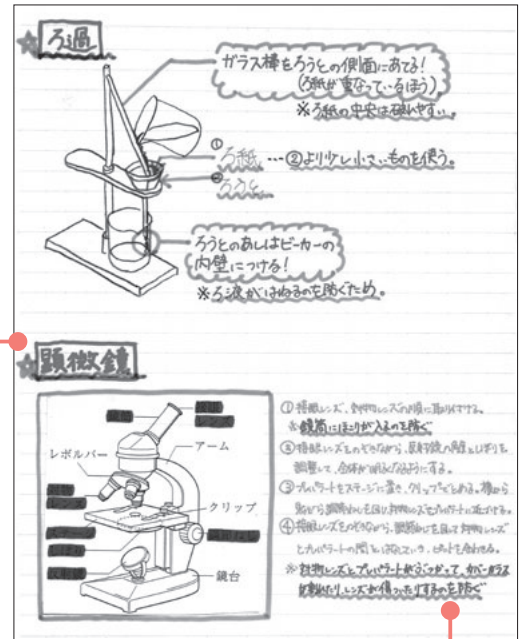 ☆ろ過
ガラス棒をろうとの側面にあてる!
(ろ紙が重なっているほう)
※ろ紙の中央は破れやすい。
① ろ紙…②より少し小さいものを使う。
② ろうと
ろうとのあしはビーカーの
内壁につける!
※ろ液がはねるのを防ぐため。
☆顕微鏡
レンズ
アーム
レボルバー
レンズ
クリップ
ステージ
しぼり
反射鏡
鏡台
①接眼レンズ、対物レンズの順に取り付ける。
※鏡筒にほこりが入るのを防ぐ
②接眼レンズをのぞきながら、反射鏡の角度としぼりを
調整して、全体が明るくなるようにする。
③プレパラートをステージに置き、クリップでとめる。横から
見ながら調節ねじを回し対物レンズをプレパラートに近づける。
④接眼レンズをのぞきながら、調節ねじを回して対物レンズ
とプレパラートの間をはなしていき、ピントを合わせる。
※対物レンズとプレパラートがぶつかって、カバーガラス
が割れたり、レンズが傷ついたりするのを防ぐ